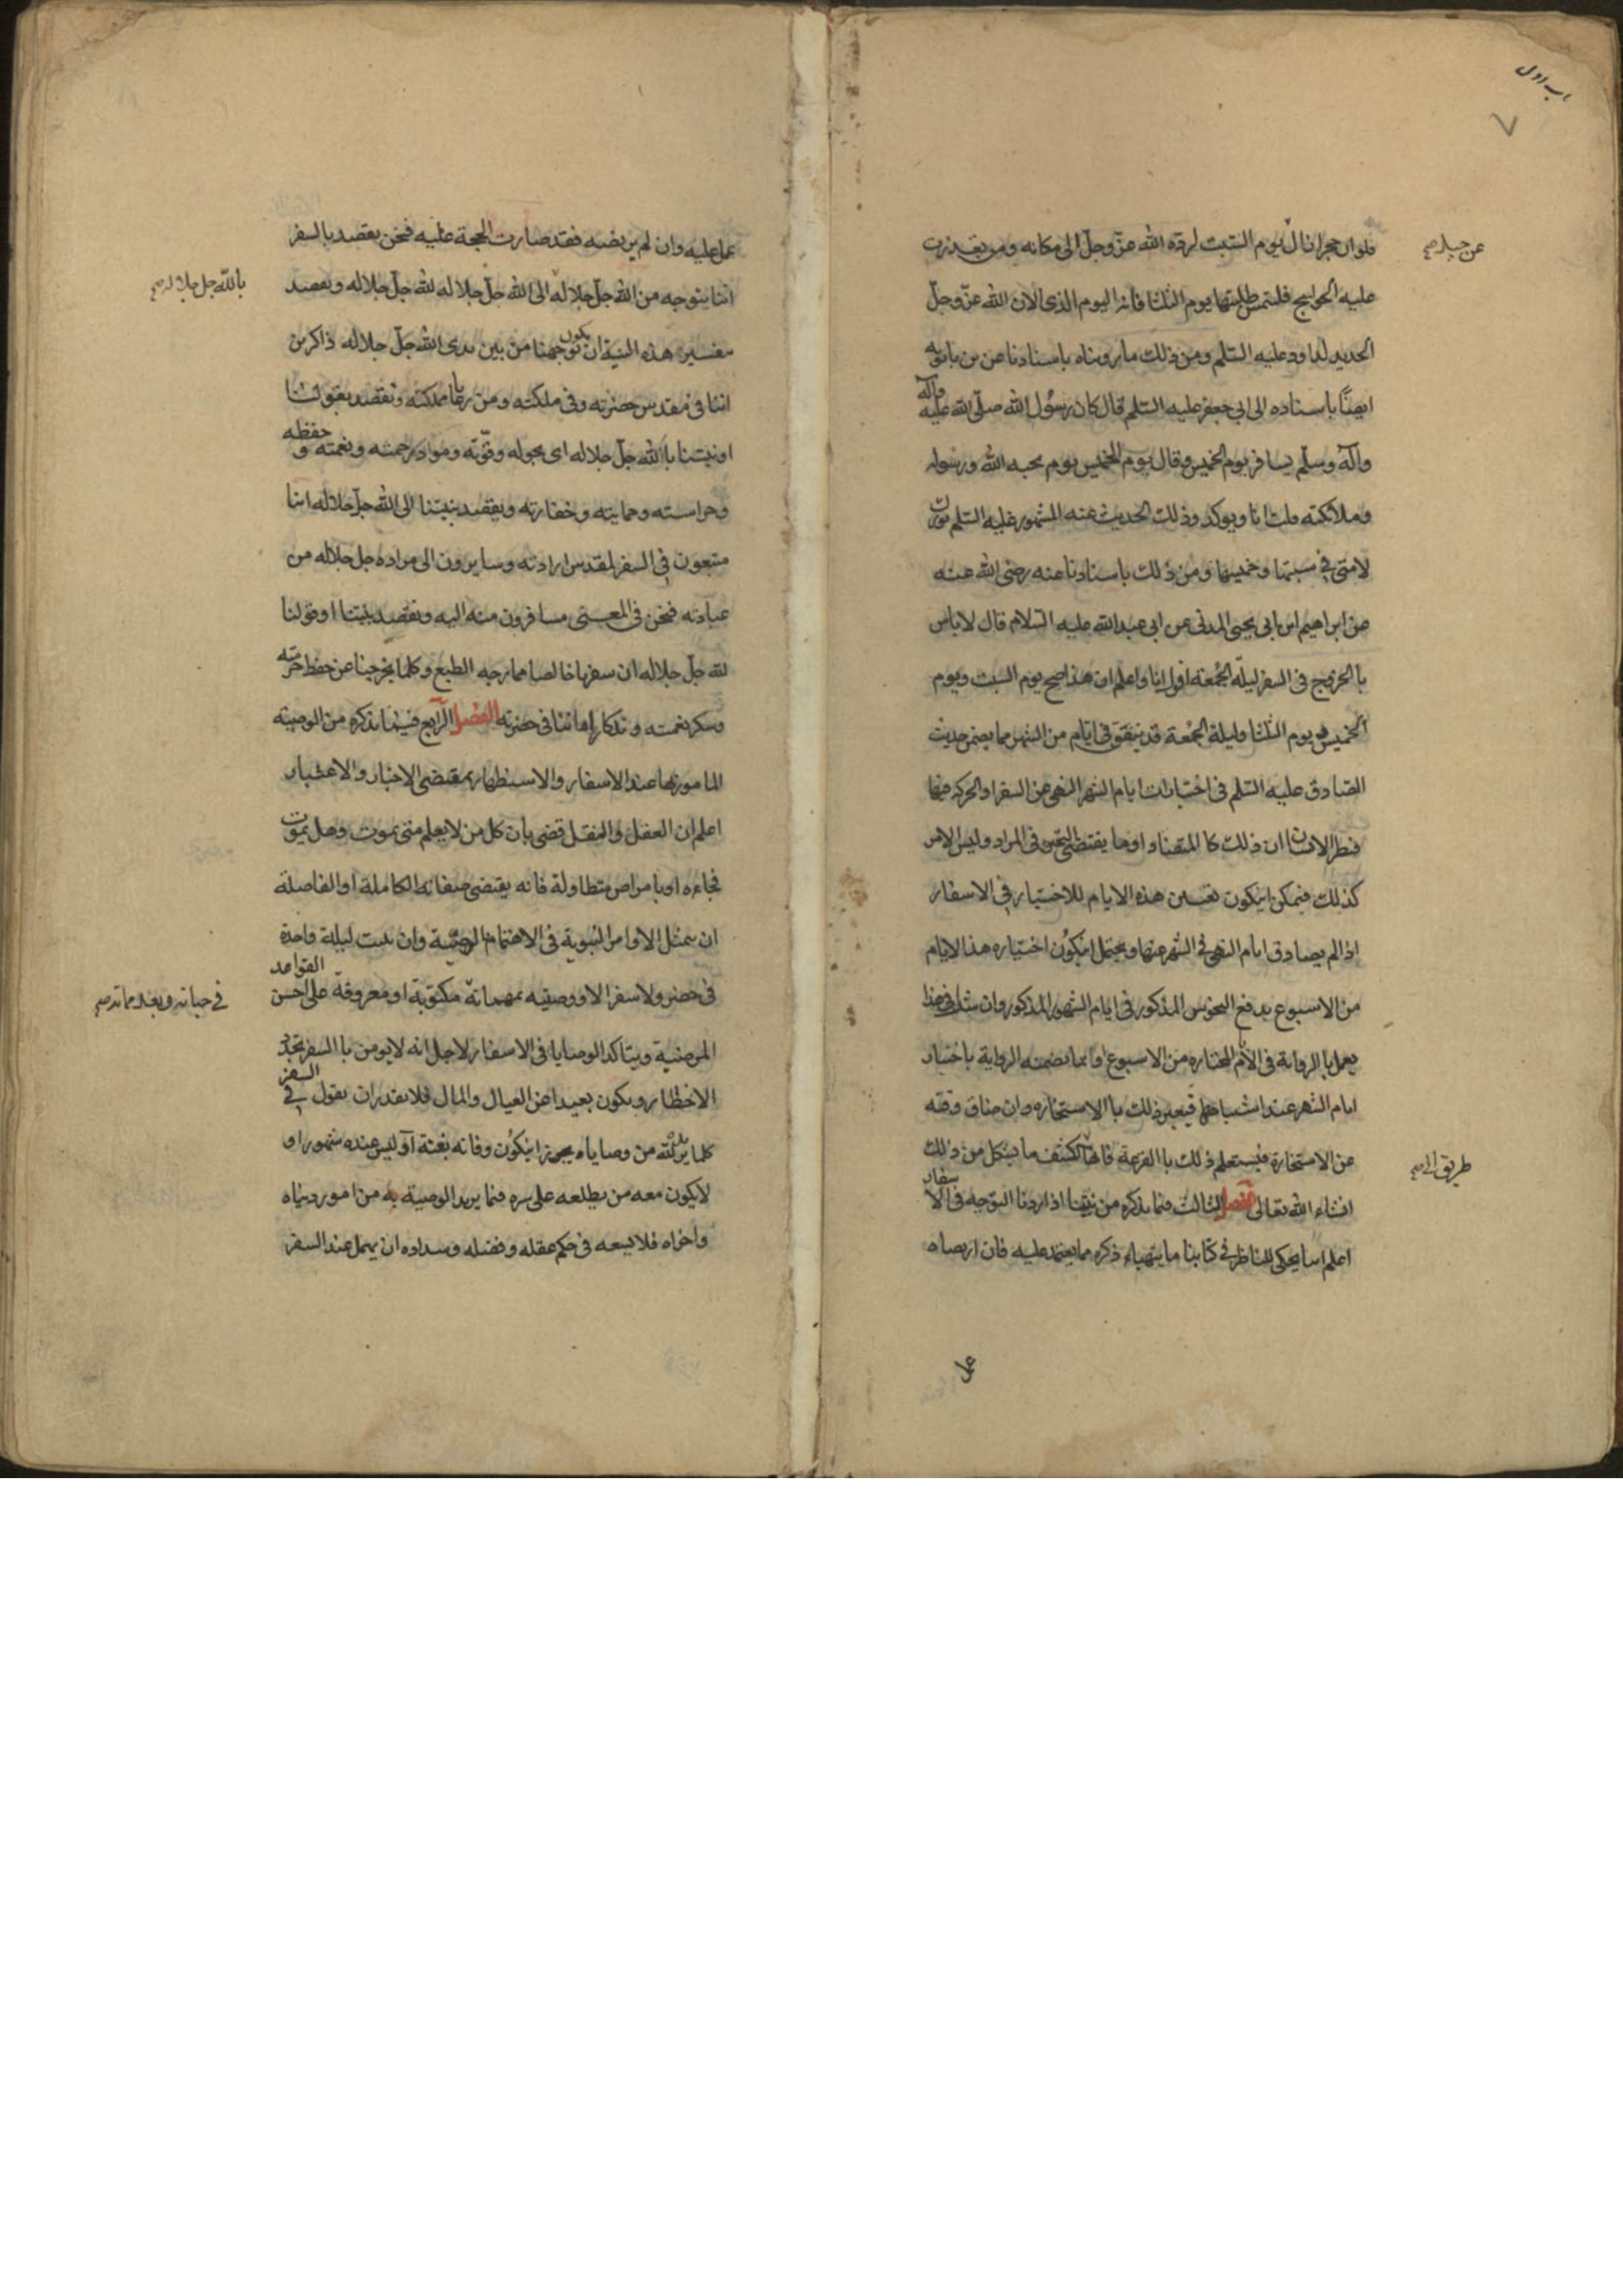 باب اول
٧
فلو ان حجرا زال يوم السبت لرده الله عز وجل الى مكانه ومن تعذرت
عن جبل صح
عليه الحوايج فليتمس طلبتها يوم الثلثا فانه اليوم الذى الان الله عز وجل
الحديد لداود عليه السلم ومن ذلك ما رويناه باسنادنا عن بن بابويه
ايضا باسناده الى ابى جعفر عليه السلم قال كان رسول الله صلى الله عليه وآله
وآله وسلم يسافر يوم الخميس وقال يوم الخميس يوم يحبه الله ورسوله
وملائكته ويوكد وذلك الحديث عنه المشهور عليه السلم بورك
لامتى فى سبتها وخميسها ومن ذلك باسنادنا عنه رضى الله عنه
عن ابراهيم ابن ابى يحيى المدنى عن ابى عبدالله عليه السلام قال لا باس
با الخروج فى السفر ليلة الجمعة اقول انا واعلم ان هذا صح يوم السبت ويوم
الخميس ويوم الثلثا وليلة الجمعة قد يتفق فى ايام من الشهر مما يضمن حديث
الصادق عليه السلم فى اختيارات ايام الشهر النهى عن السفر او الحركة فيها
فنظر الانسان ان ذلك كا المتضاد او ما يقتضى التحير فى المراد وليس الامر
كذلك فيمكن ايكون تعيين هذه الايام للاختيار فى الاسفار
اذا لم يصادق ايام النهى فى الشهر عنها ويحتمل ايكون اختيار هذا الايام
من الاسبوع يدفع النحوس المذكور فى ايام الشهور المذكور وان شك فى هذا
يعمل با الرواية فى الايام المختاره من الاسبوع او بما تضمنه الرواية باختيار
ايام الشهر عند اشتباهها فيعبر ذلك با الاستخاره وان ضاق وقته
عن الاستخارة فيستعلم ذلك با القرعة فانها تكشف ما يشكل من ذلك
طريق الى صح
انشاء الله تعالى الفصل الثالث فيما نذكره من نيتنا اذا اردنا التوجه فى الاسفار
اعلم اننا يحكى للناظر فى كتابنا ما يتهياء ذكره مما يعتمد عليه فان ارتضاه
عمل
عمل عليه وان لم يرتضيه فقد صارت الحجة عليه فنحن نقصد بالسفر
اننا نتوجه من الله جل جلاله الى الله جل جلاله لله جل جلاله ونقصد
بالله جل جلاله صح
بتفسير هذه النية ان يكون توجهنا من بين يدى الله جل جلاله ذاكرين
اننا فى مقدس حضرته وفى ملكته ومن رعايا مملكته ونقصد بقولنا
او نيتنا بالله جل جلاله اى بحوله وقوته ومواد رحمته ونعمته وحفظه
وحراسته وحمايته وخفارته ونقصد بنيتنا الى الله جل جلاله اننا
متبعون فى السفر لمقدس ارادته وسايرون الى مراده جل جلاله من
عبادته فنحن فى المعنى مسافرون منه اليه ونقصد بنيتنا او قولنا
لله جل جلاله ان سفرنا خالصا مما يرجه الطبع وكلما يخرجنا عن حفظ حرمته
وشكر نعمته وتذكار اننا فى حضرته الفصل الرابع فيما نذكره من الوصية
المامور بها عند الاسفار والاستظهار بمقتضى الاخبار والاعتبار
اعلم ان العقل والنقل قضى بان كل من لا يعلم متى يموت وهل يموت
فجاءه او بامراض متطاولة فانه يقتضى صفاته الكاملة او الفاضلة
ان يمتثل الاوامر النبوية فى الاهتمام بالوصية وان لا يبت ليلة واحدة
فى حضر ولا سفر الا ووصيته بمهماته مكتوبة او معروفة على احسن القواعد
فى حياته وبعد مماته صح
المرضية ويتاكد الوصايا فى الاسفار لاجل انه لا يومن با السفر تجدد
الاخطار ويكون بعيدا عن العيال والمال فلا يقدر ان يقول فى السفر
كلما يريده من وصاياه يجوز ايكون وفاته بغتة او ليس عنده شهور او
لا يكون معه من يطلعه على سره فيما يريد الوصية به من امور دنياه
واخراه فلا يسعه فى حكم عقله وفضله وسداده ان يهمل عند السفر